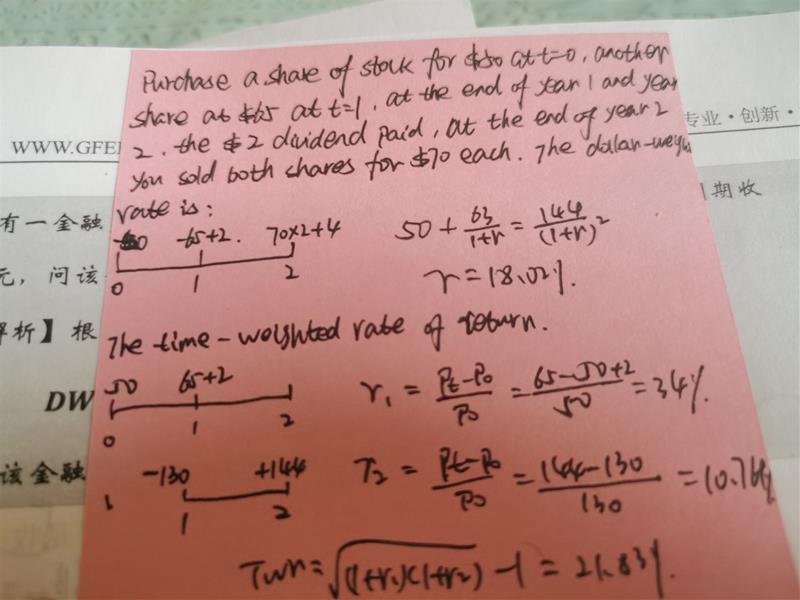 Purchase a share of stock for $50 at t=0, another
share at $65 at t=1. at the end of year 1 and year
2. the $2 dividend paid, at the end of year 2
you sold both shares for $70 each. The
rate is:
-65+2. 70×2+4
0 1 2
50 + 63/(1+r) = 144/(1+r)²
r=18.02%.
The time-weighted rate of return.
50 65+2
0 1 2
r₁ = (Pt-P0)/P0 = (65-50+2)/50 = 34%.
-130 +144
1 2
r₂ = (Pt-P0)/P0 = (144-130)/130 = 10.76%
TWR = √(1+r₁)(1+r₂) -1 = 21.83%.
WWW.GFE
专业·创新·
有一金融
期收
元，问该
析】根
DW
该金融